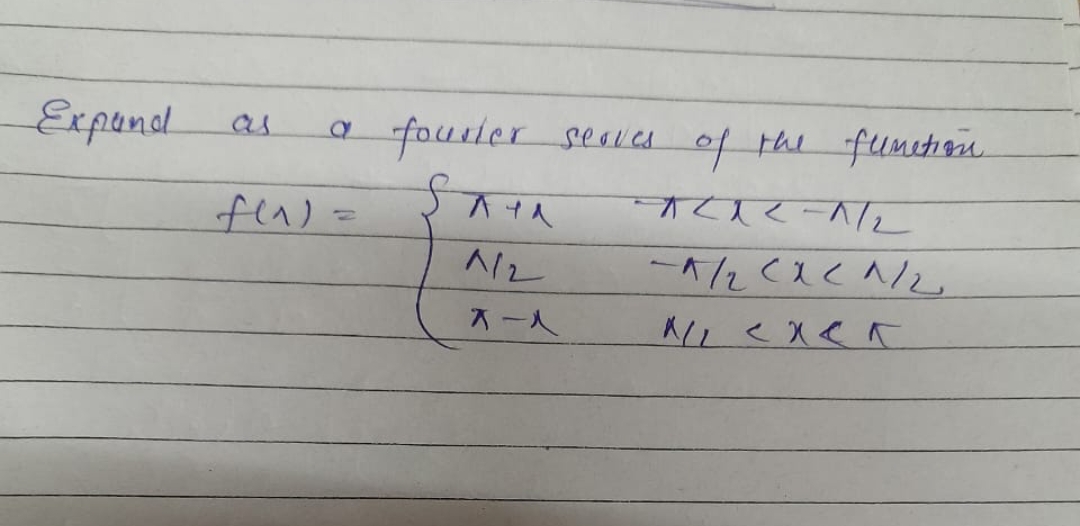 Expand as a fourier series of the function
f(x) = { π+x -π<x<-π/2
π/2 -π/2<x<π/2
π-x π/2<x<π